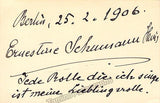 Berlin, 25. 2. 1906.
Ernestine Schumann Heink
Jede Rolle die ich singe
ist meine lieblingsrolle.